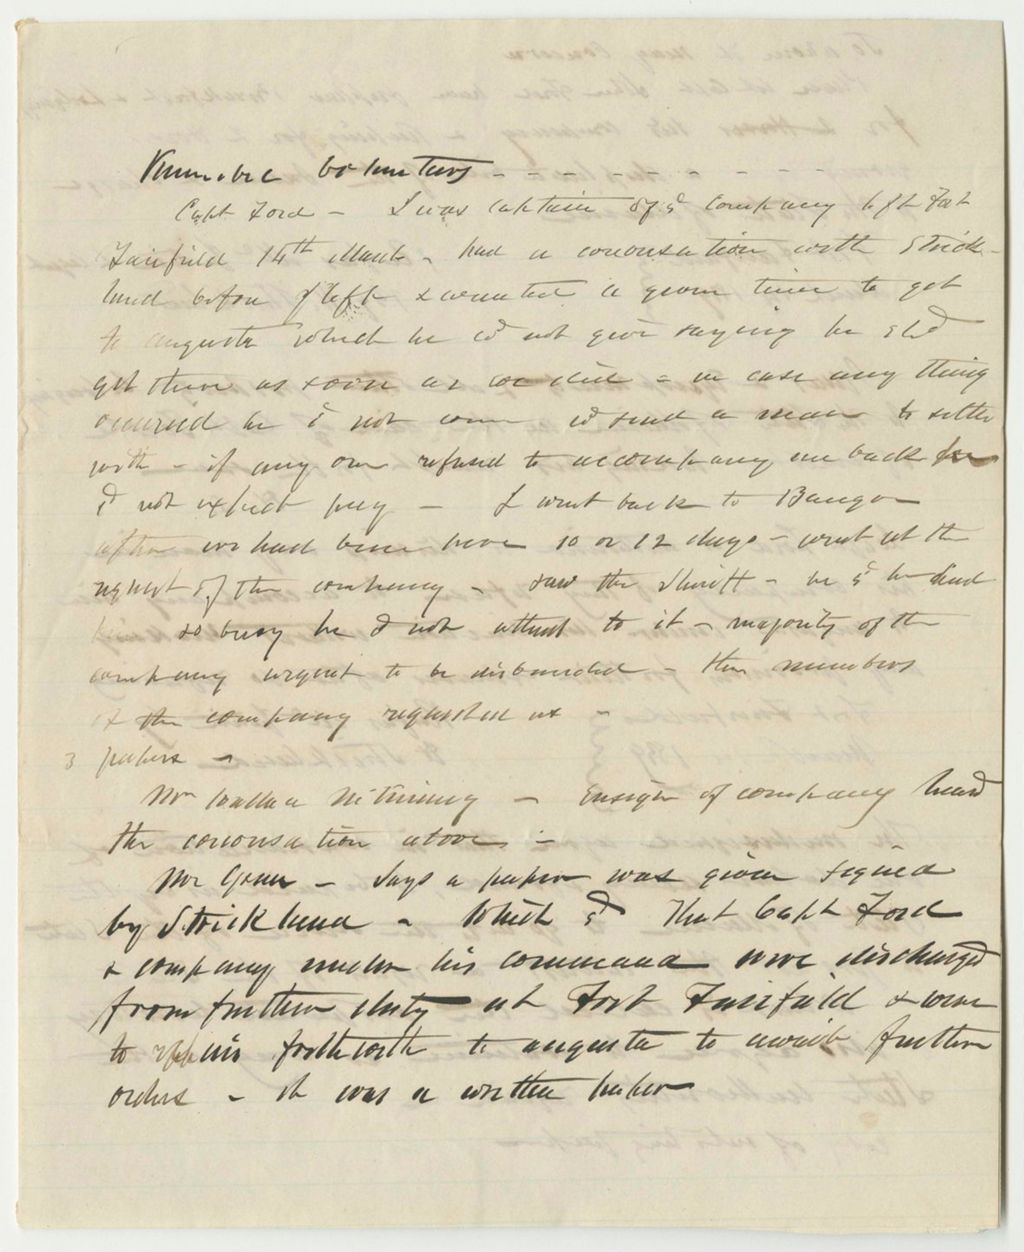 Kennebec Volunteers - - - - - - - - -
Capt Ford - I was captain of sd company left Fort
Fairfield 14th March - had a conversation with Strick-
land before I left & wanted a given time to get
to augusta which he wd not give saying he shd
get there as soon as we did - in case any thing
occurred he d not come wd send a man to settle
with - if any one refused to accompany me back he
d not expect pay - I went back to Bangor
after we had been here 10 or 12 days - went at the
request of the company - saw the Sheriff - he sd he had
been so busy he d not attend to it - majority of the
company urgent to be disbanded - the members
of the company requested
3 papers -
Mr Wallace - Ensign of company heard
the conversation above -
Mr Green - Says a paper was given signed
by Strickland - Which sd That Capt Ford
& company under his command were discharged
from further duty at Fort Fairfield & were
to repair forthwith to augusta to await further
orders - it was a written paper